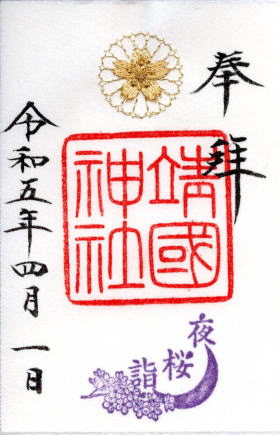 奉拝
靖國
神社
夜桜詣
令和五年四月一日